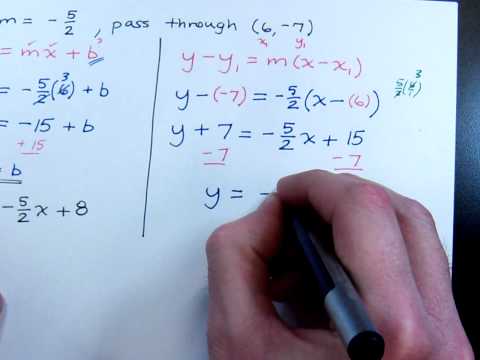 m = -5/2, pass through (6, -7)
x₁ y₁
= mx + b?
= -5/2(6) + b
3
= -15 + b
+ 15
= b
-5/2x + 8
y - y₁ = m(x - x₁)
y - (-7) = -5/2(x - (6))
5/2(6/1)
3
y + 7 = -5/2x + 15
-7 -7
y = -